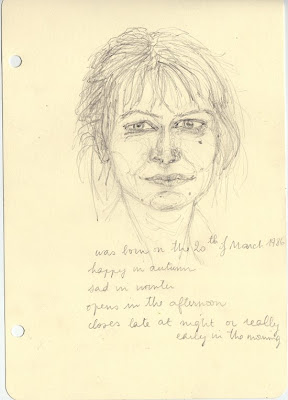 was born on the 20th of March 1986
happy in autumn
sad in winter
opens in the afternoon
closes late at night or really
early in the morning